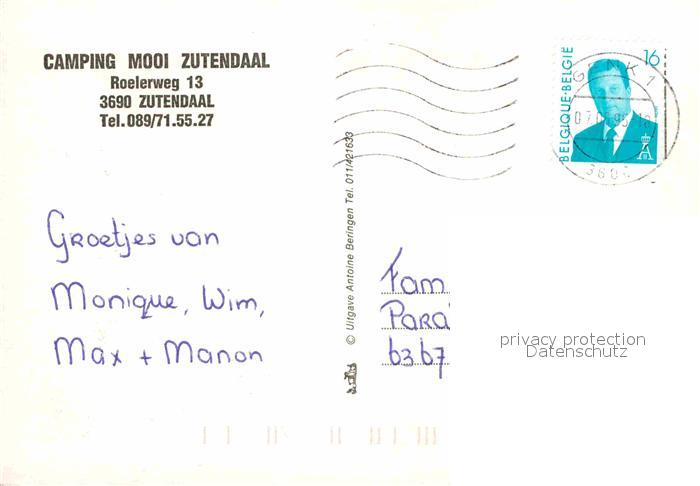 CAMPING MOOI ZUTENDAAL
Roelerweg 13
3690 ZUTENDAAL
Tel.089/71.55.27
Groetjes van
Monique, Wim,
Max + Manon
© Uitgave Antoine Beringen Tel. 011/421633
BELGIQUE-BELGIE
16
GENK 1
3600
Fam
Para
6367
privacy protection
Datenschutz